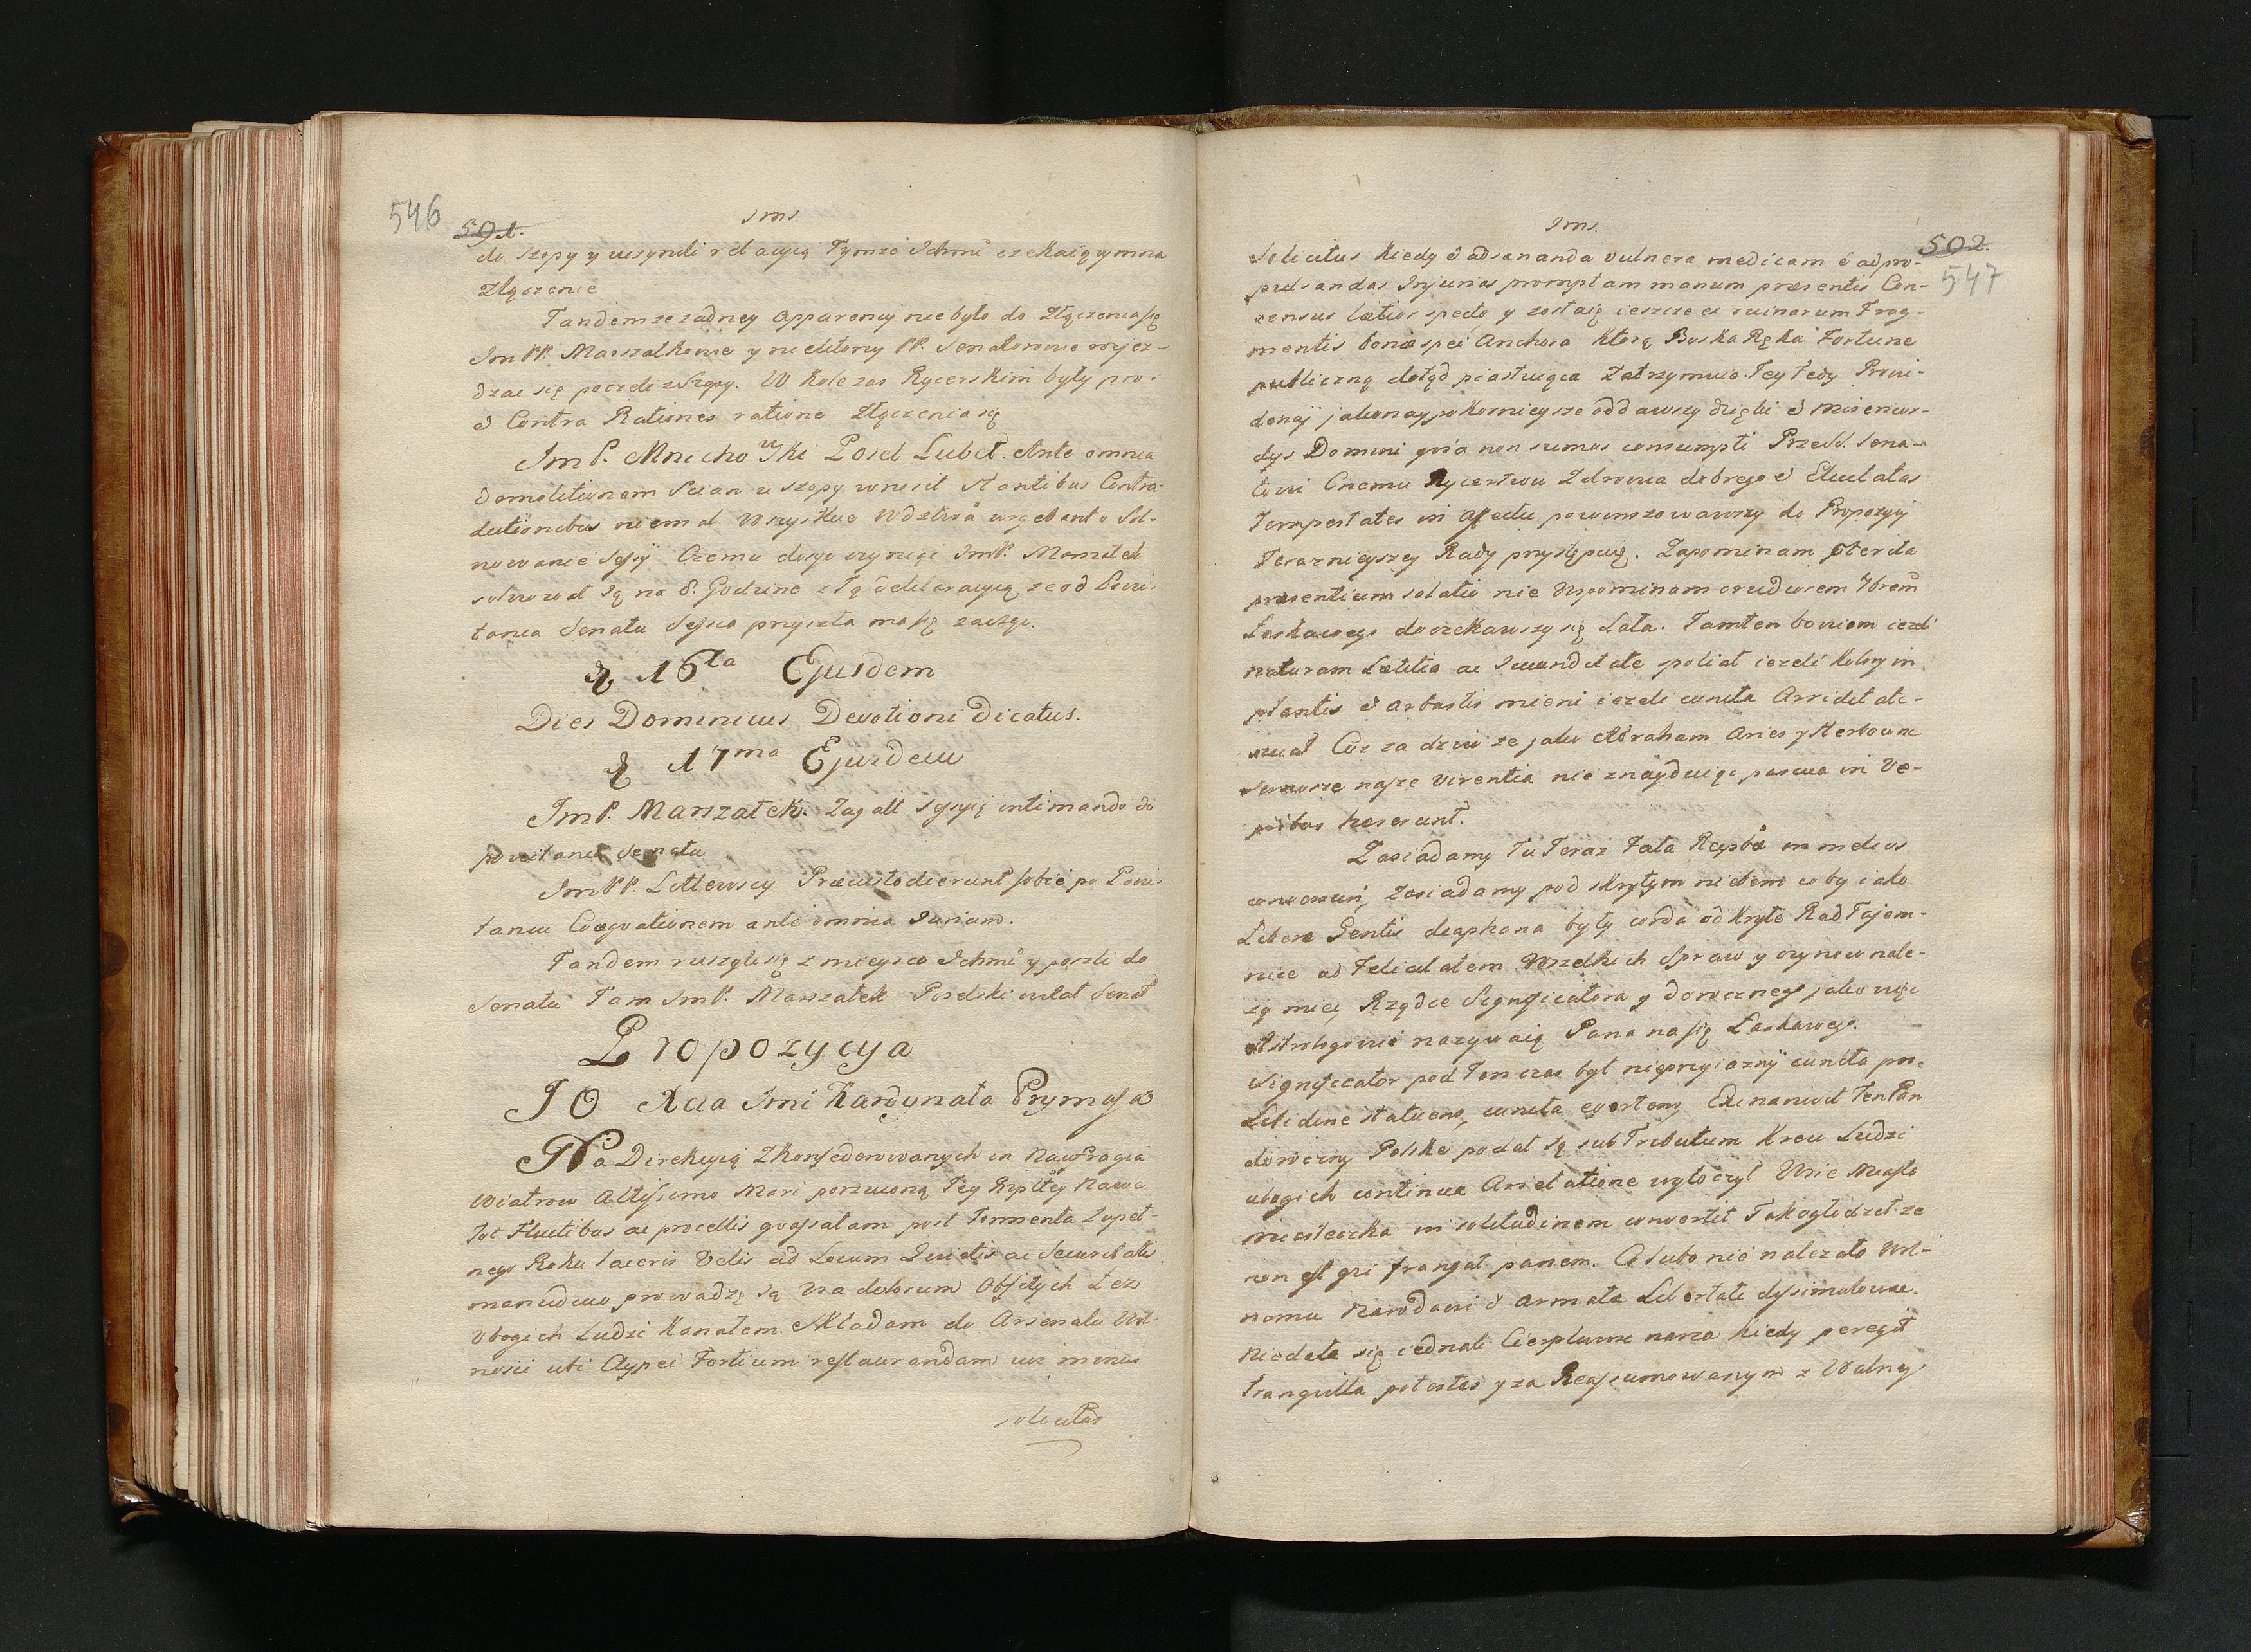 546
501.
Jms.
do szopy y uczynili relacyią Tymże Ichmć czekaiącym na
Złączenie
Tandem ze zadney apparency nie było do Złączenia się
Im PP. Marszałkowie y niektorzy PP. Senatorowie rozjez-
dzac się poczeli z Szopy. W Kole zas Rycerskim były pro
& Contra Rationes ratione Złączenia się
Im P. Mnichowski Posel Lubel. Ante omnia
demolitionem Scian u szopy wnosił Stantibus Contra-
dictionibus niemal wszyskie Wdztwa urgebant o Sol-
wowanie Sessÿi Czemu dosyc czyniąc ImP. Marszałek
solwował Ią na 8. Godzine z tą deklaracyią ze od Powi-
tania Senatu Sessia przyszła ma się zacząc.
D 16ta Ejusdem
Dies Dominicus Devotioni dicatus.
D 17ma Ejusdem
ImP. Marszałek. Zagaił Sessyią intimando do
powitania Senatu
ImPP. Littewscy Præcustodierunt sobie po Powi-
taniu Coæquationem ante omnia Jurium.
Tandem ruszyli się z mieysca Ichmć y poszli do
Senatu Tam ImP. Marszałek Poselski witał Senat
Propozycya
JO Xcia Jmci Kardynała Prymasa
Na Direkcyią Zkonfederowanych in Naufragia
Wiatrow Altissimo Mari porzuconą Tey Rzpltey Nawę
tot Fluctibus ac procellis quassatam post Tormenta Zupeł-
nego Roku laceris Velis ad Locum Quietis ac Securitatis
manuduco prowadzę Ią Via dolorum Obfitych Łez
Ubogich Ludzi Kanałem. Składam do Arsenału Wol-
nosci ubi Clypei Fortium restaurandam wz minus
solicitus
Jms.
502.
547
Solicitus Kiedy & ad sananda vulnera medicam & ad pro-
pulsandas Injurias promptam manum præsentis Con-
sensus lætior specto y zostaię ieszcze ex ruinarum Frag-
mentis bonæ spei Anchora Ktorą Boska Ręka Fortune
publiczną dotąd piastuiąca Zatrzymuie. Tey tedy Provi-
dencÿi jako naypokornieysze oddawszy dzięki & Misericor-
dys Domini quia non sumus consumpti Przesw. Sena-
towi Cnemu Rycerstwu Zdrowia dobrego & Eluctatas
Tempestates in affectu powinszowawszy do Propozyÿi
Teraznieyszey Rady przystępuię. Zapominam pterita
præsentium solatio nie Wspominam crudiorem Hiem
Łaskawego doczekawszy się Lata. Tamten bowiem iezeli
naturam Lætitia ac Iucunditate spoliat iezeli kolory in
plantis & arbustis mieni iezeli cuncta Arridet ate-
nuat Coz za dziw ze jako Abraham Aries y Herbowne
Junosze nasze virentia nie znayduiąc pascua in Ve-
pribus heserunt.
Zasiadamy Tu Teraz Fata Rzptæ in melius
conversuri, zasiadamy pod skrytym niebem coby iako
Liberæ Gentis diaphana były corda odkryte Rad Tajem-
nice ad Felicitatem Wszelkich Spraw y czynow nale-
zy miec Rządce Significatora y dorocznego jako więc
Astrologowie nazywaią Pana na się Łaskawego.
Significator pod Ten czas był nieprzyiaznÿ cuncta pro
Libidine statuens, cuncta evertens Exinanivit Ten Pan
doroczny Polskę podał Ią sub Tributum Krew Ludzi
ubogich continua Arietatione wytoczył Wsie Miasta
Miasteczka in solitudinem convertit Tak ogłodził ze
non est qui frangat panem. A lubo nie nalezało Wol-
nemu Narodowi & armata Libertate dissimulowac.
Niedała się iednak Cierpliwosc nasza Kiedy peregit
tranquilla potestas y za Reassumowanym z Walney